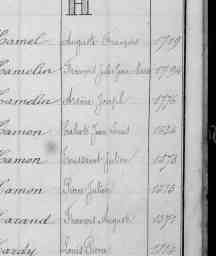 H
Hamel Auguste François 1789
Hamelin François Jules Jean Marie 1794
Hamelin Arsène Joseph 1776
Hamon Jean Louis
Hamon Toussaint Julien 1873
Hamon Pierre Julien 1875
Harand François Auguste
Hardy Louis Pierre